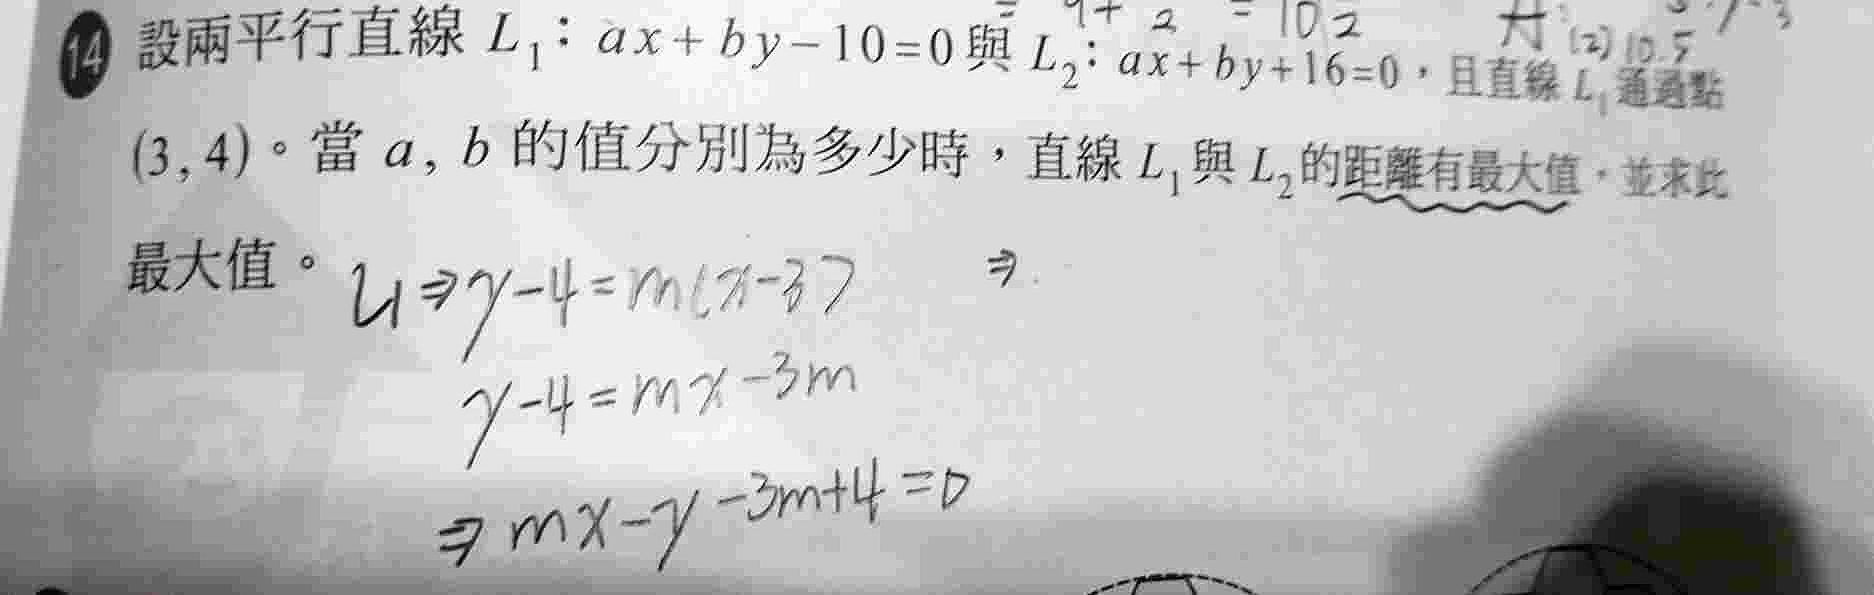 = 9+2 = 102
(2) 10.5
14 設兩平行直線 L₁：ax+by−10=0 與 L₂：ax+by+16=0，且直線 L₁ 通過點
(3,4)。當 a, b 的值分別為多少時，直線 L₁ 與 L₂ 的距離有最大值，並求此
最大值。
L1⇒y-4=m(x-3) ⇒
y-4=mx-3m
⇒mx-y-3m+4=0